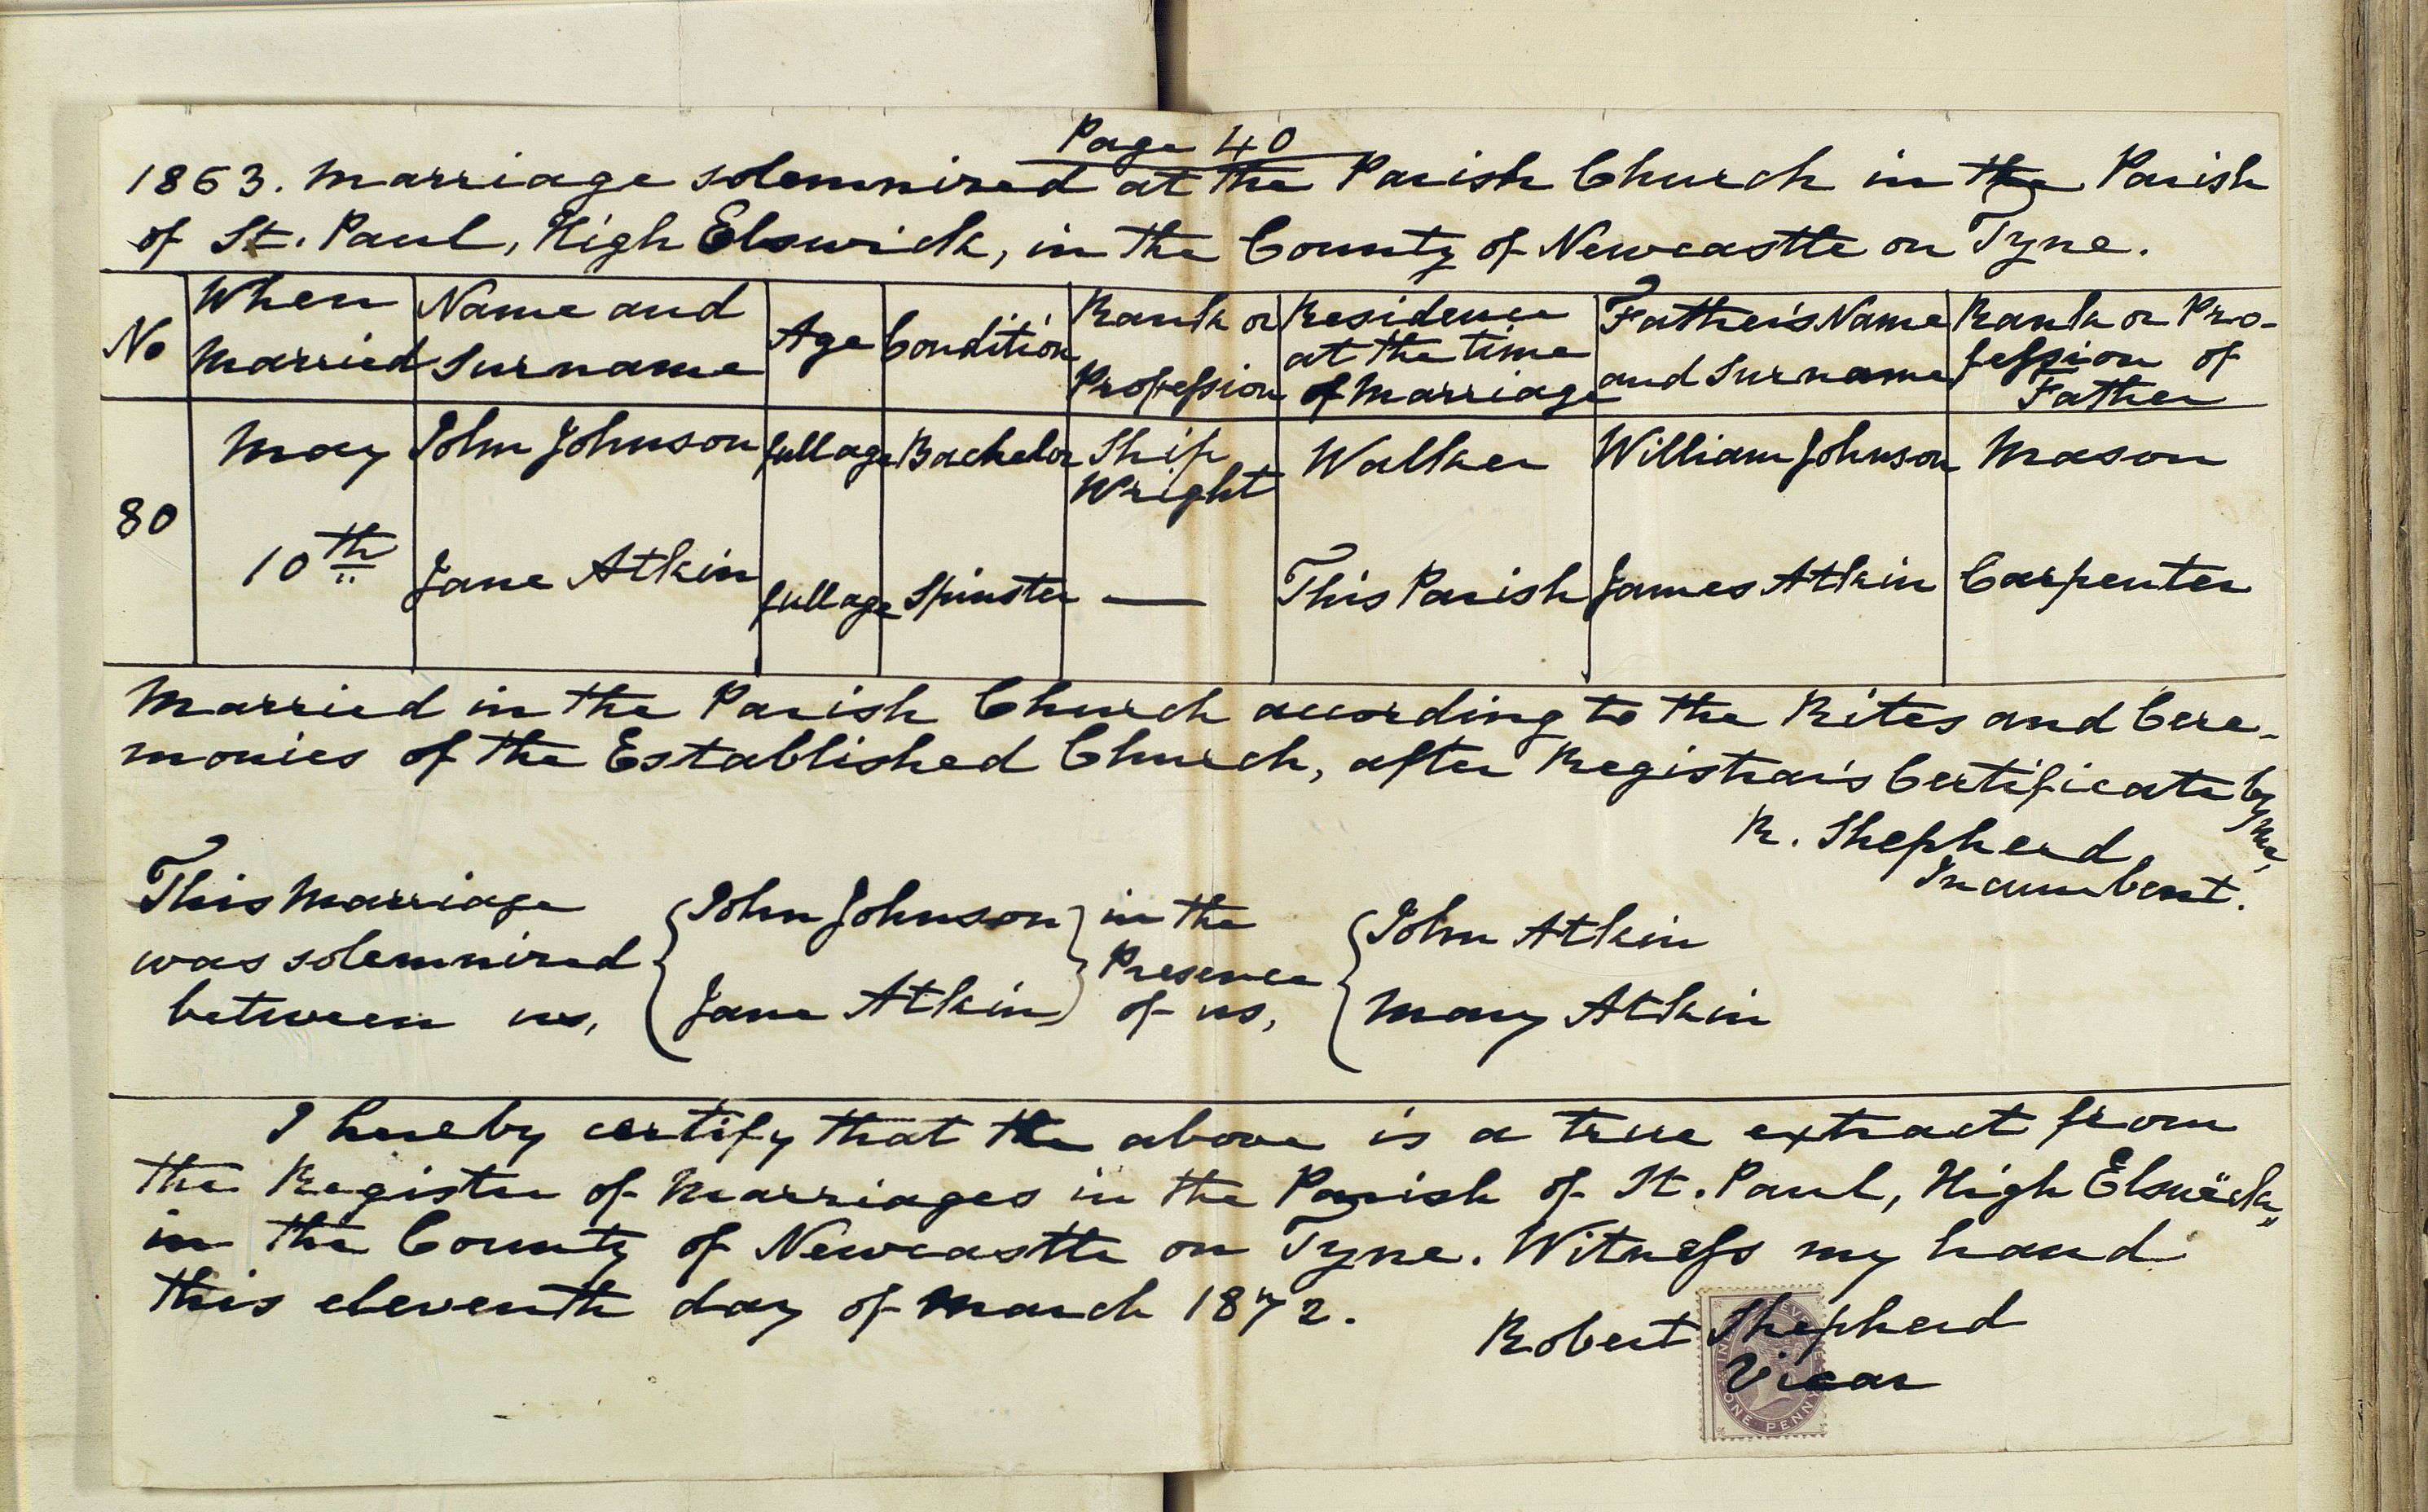 Page 40
1863. Marriage solemnized at the Parish Church in the Parish
of St. Paul, High Elswick, in the County of Newcastle on Tyne.
No | When Married | Name and Surname | Age | Condition | Rank or Profession | Residence at the time of Marriage | Father's Name and Surname | Rank or Profession of Father
80 | May 10th | John Johnson | full age | Bachelor | Ship Wright | Walker | William Johnson | Mason
Jane Atkin | full age | Spinster | — | This Parish | James Atkin | Carpenter
Married in the Parish Church according to the Rites and Cere-
monies of the Established Church, after Registrar's Certificate by me,
R. Shepherd,
Incumbent.
This Marriage
was solemnized
between us,
{ John Johnson
Jane Atkin }
in the
Presence
of us,
{ John Atkin
Mary Atkin
I hereby certify that the above is a true extract from
the Register of Marriages in the Parish of St. Paul, High Elswick,
in the County of Newcastle on Tyne. Witness my hand
this eleventh day of March 1872.
Robert Shepherd
Vicar
ONE PENNY